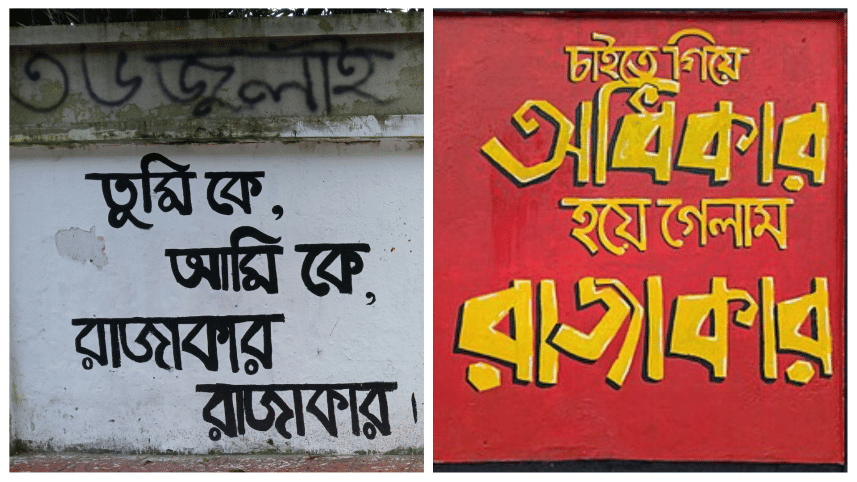 ৩৬ জুলাই
তুমি কে,
আমি কে,
রাজাকার
রাজাকার।
চাইতে গিয়ে
অধিকার
হয়ে গেলাম
রাজাকার